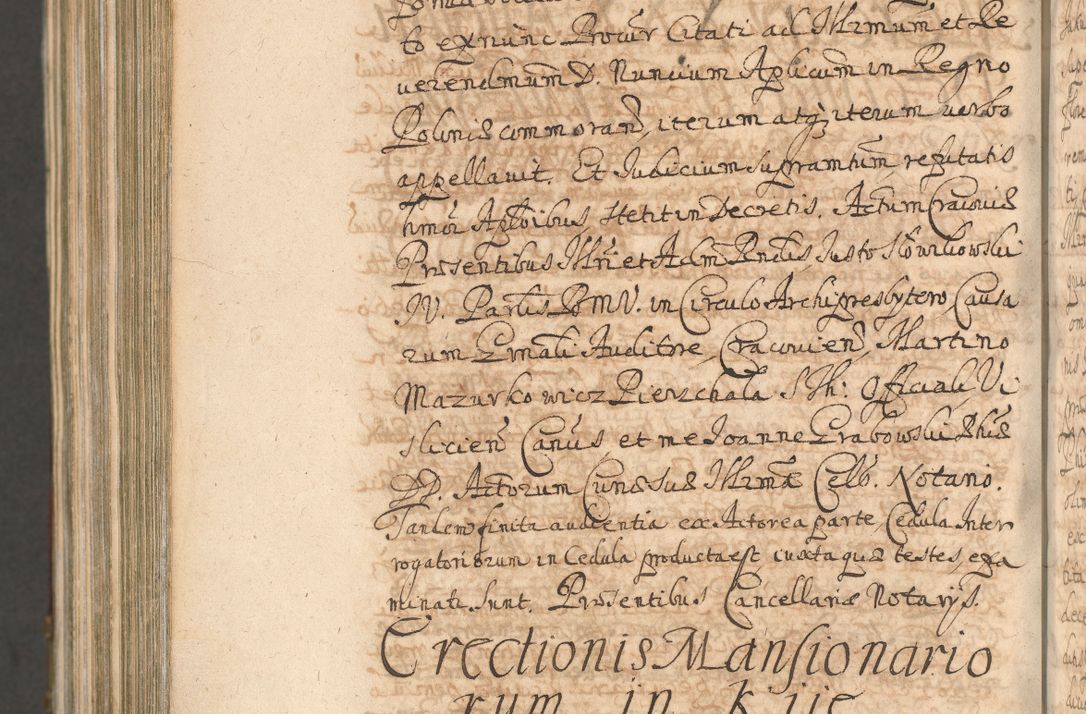 to exnunc Procur Citati ad Illrmum et Re
uerendmum D. Nuncium Aplicum in Regno
Poloniæ commoran, iterum atqz iterum verbo
appellauit. Et Iudicium supramtum refutatis
timor Aploibus, stetit in Decretis. Actum Cracouiæ
Præsentibus Illri et Adm Rndis Iusto Słowikowski
IV. Partis BMV. in Circulo Archipresbytero, Causa
rum Gnali Auditore, Cracouien, Martino
Mazurkowicz Pierzchała S Th: Officiali Vi
slicien Canus et me Ioanne Grabowski Phiæ
D. Actorum Cunæ suæ Illrmæ Celb. Notario.
Tandem finita audientia ex Actorea parte, Cedula Inter
rogatoriorum in Cedula producta est iuxta quæ testes, exa
minati sunt. Præsentibus Cancellariæ Notarijs.
Erectionis Mansionario
rum in Kiie